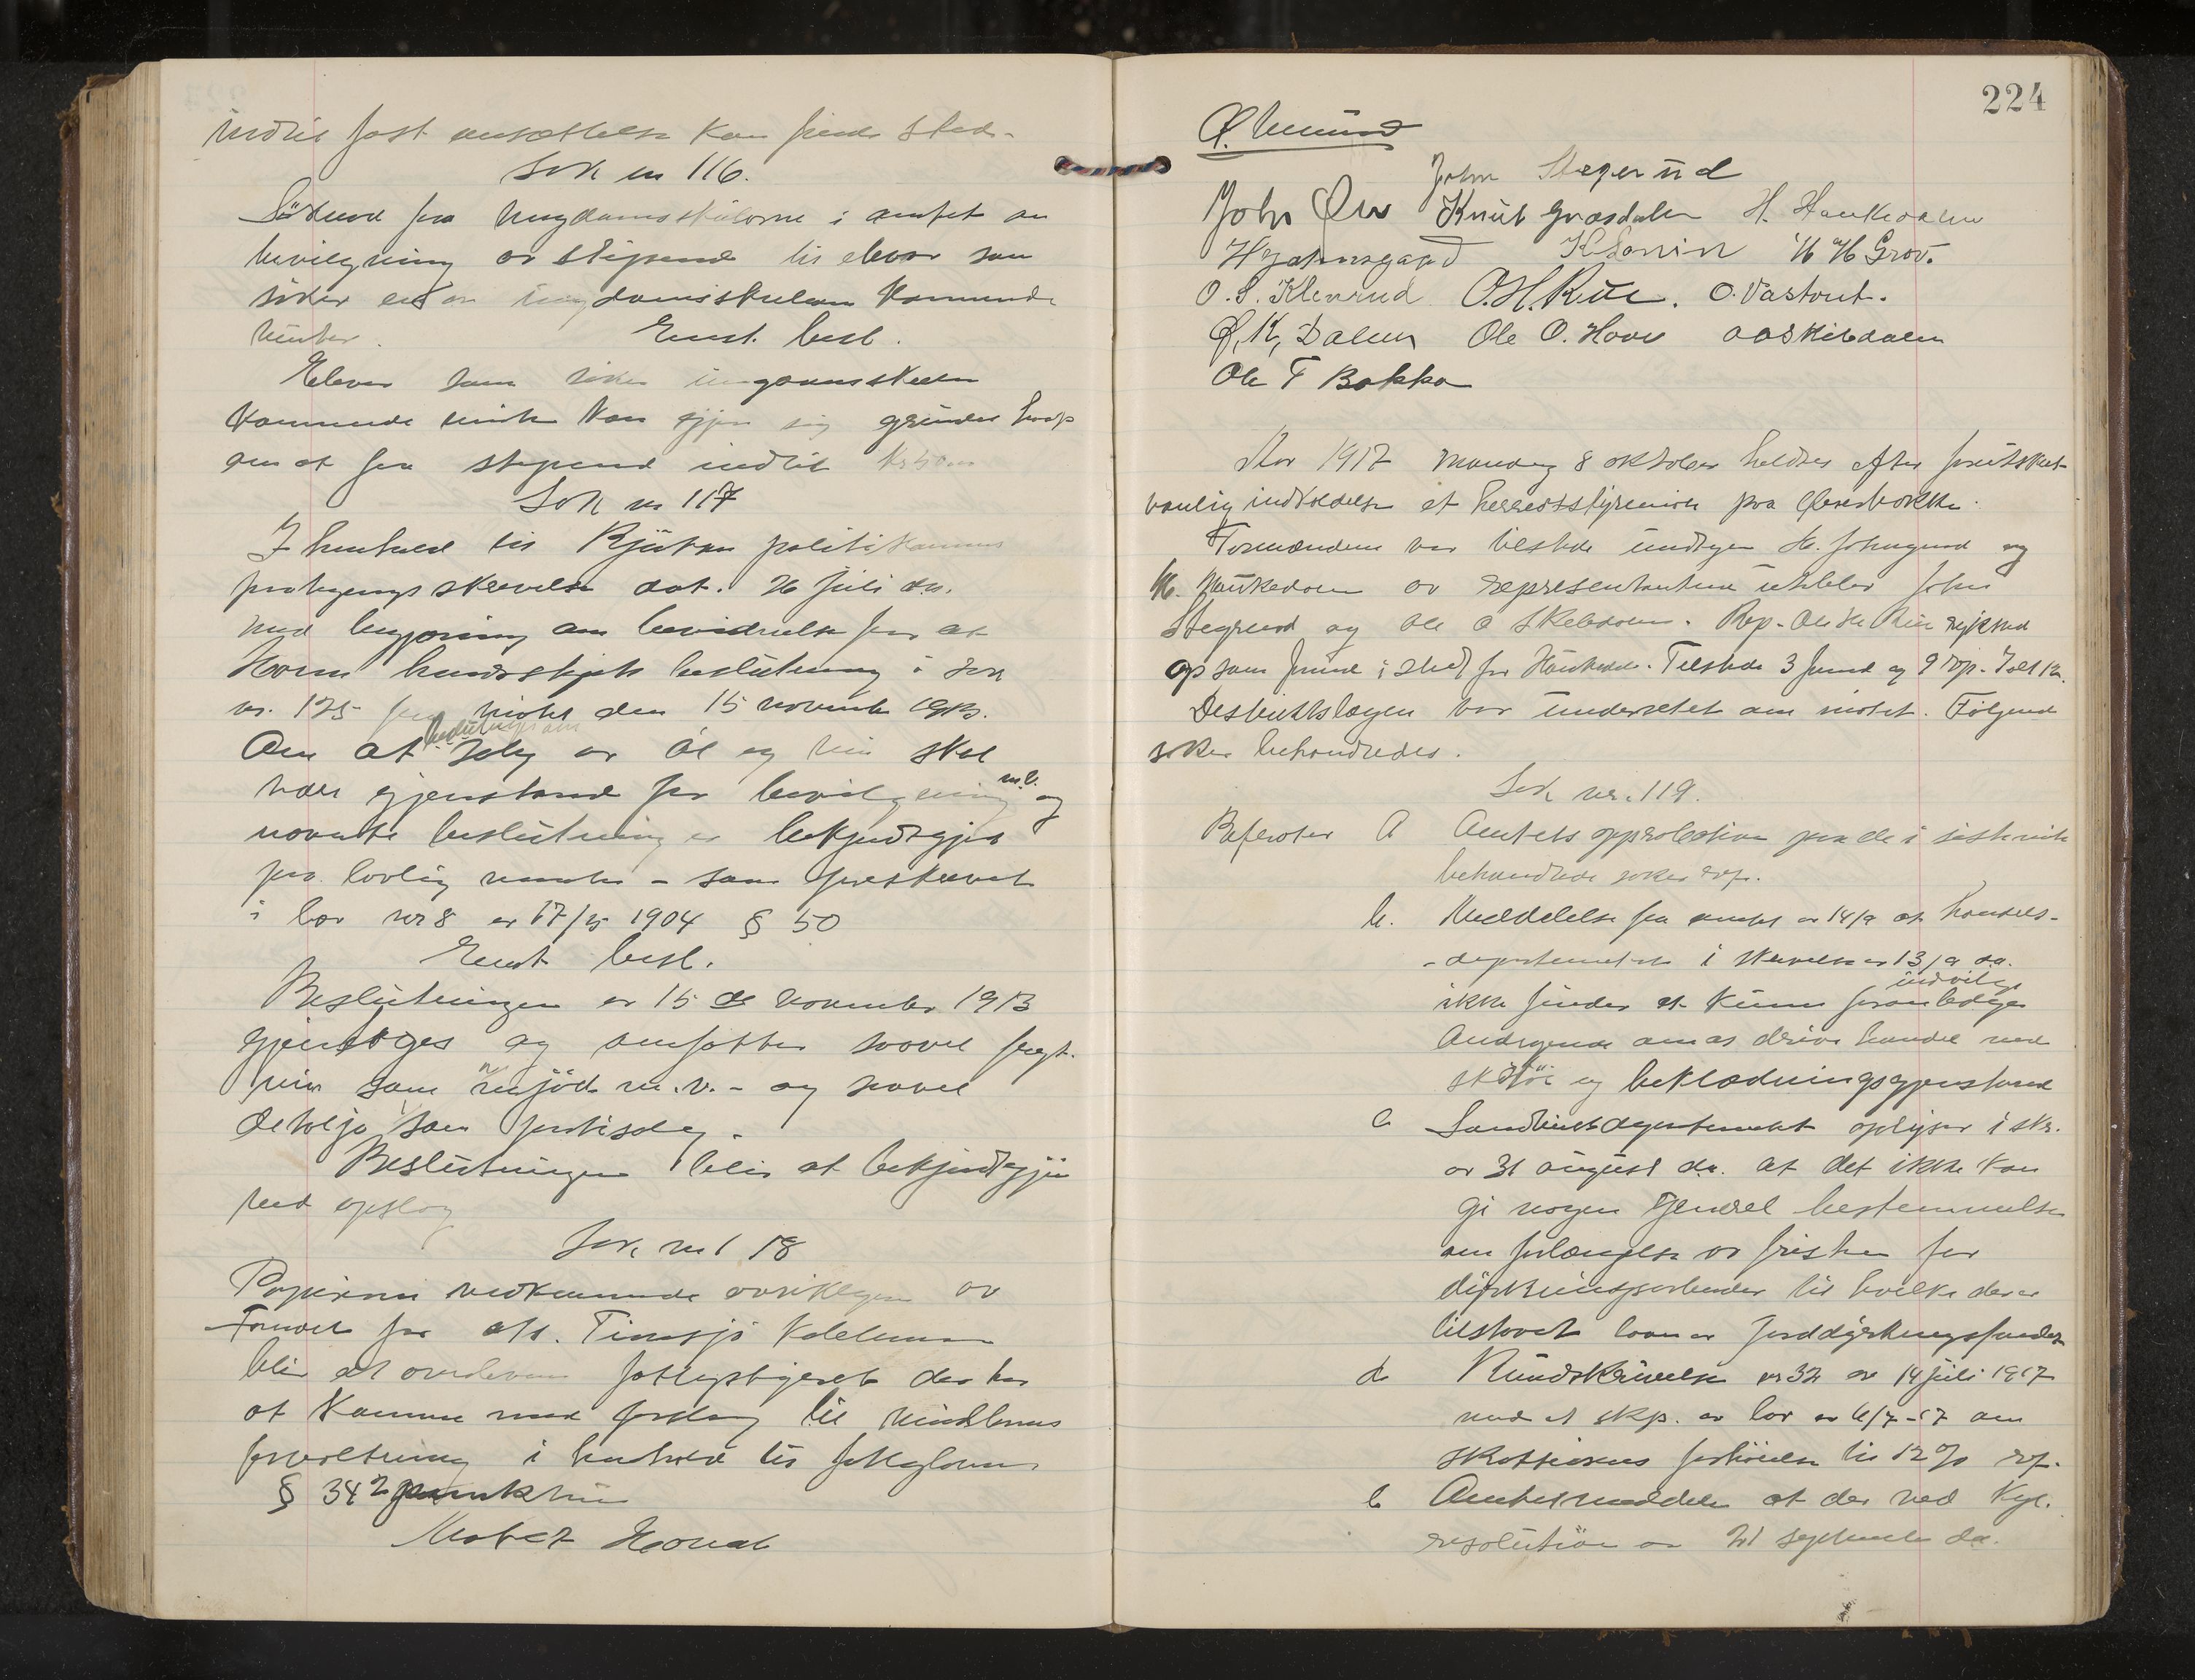 indtil fast ansættelse kan finde sted.
Sak nr 116.
fra ungdomsskolerne i amtet om
bevilgning av stipend til elever som
søker en av ungdomsskolerne kommende
vinter. Enst. besl.
Elever som søker ungdomsskolen
kommende vinter kan gjøre sig grundet haap
om at faa stipend indtil
Sak nr 117
I henhold til Rjukan politikammers
skrivelse dat. 26 juli d.a.
med begjæring om for at
herredsstyrets beslutning i sak
nr. 125 fra møtet den 15 novembr 1913.
Om at salg av øl og vin skal
være gjenstand for bevilgning m.v. og
nævnte beslutning er bekjendtgjort
paa lovlig maate - som foreskrevet
i lov nr 8 av 17/5 1904 § 50
Enst besl.
Beslutningen av 15 de november 1913
gjentages og omfatter saavel frugt-
vin som mjød m.v. - og saavel
detalj som
Beslutningen blir at bekjendtgjøre
ved opslag
Sak nr 118
Papirerne vedkommende av
Formuen for
blir at overlevere det
at komme med forslag til midlernes
forvaltning i henhold til
§ 34 2 punktum
Møtet Hævet
224
John Stegerud
John Knut Graasdalen H. Haukedalen
H. H. Grov.
O. S. Klevrud O. H. Rue. O. Vastveit.
Ø. K. Dalen Ole O. Hove O O Skibdalen
Ole T Bakka
Aar 1917 mandag 8 oktober holdtes efter forutskikket
vanlig indkaldelse et herredsstyremøte paa
Formændene var tilstede undtagen H. og
H. Haukedalen av representanterne uteblev John
Stegerud og Ole O Skibdalen. Rep. Ole H Rue rykked
op som formd i sted for Haukedal. Tilstede 3 formd og 9 rep. Ialt 12.
Distriktslægen var underrettet om møtet. Følgende
saker behandledes.
Sak nr. 119.
Referater A Amtets approbation paa de i siste møte
behandlede saker ref.
b. Meddelelse fra amtet av 14/9 at handels-
-departementet i skrivelse av 13/9 d.a.
ikke finder at kunne indvilge
Andragende om at drive handel med
skotøi og beklædningsgjenstand
c Landbruksdepartementet oplyser i skr.
av 31 august d.a. at det ikke kan
gi nogen generel bestemmelse
om forlængelse av fristen for
dyrkningsarbeider til hvilke der er
tilstaaet laan av Jorddyrkningsfondet
d Rundskrivelse nr 32 av 14 juli 1917
med et ekp. av lov av 6/7-17 om
skatteørens forhøielse til 12% ref.
e Amtet meddeler at der ved Kgl.
resolution av 21 september d.a.